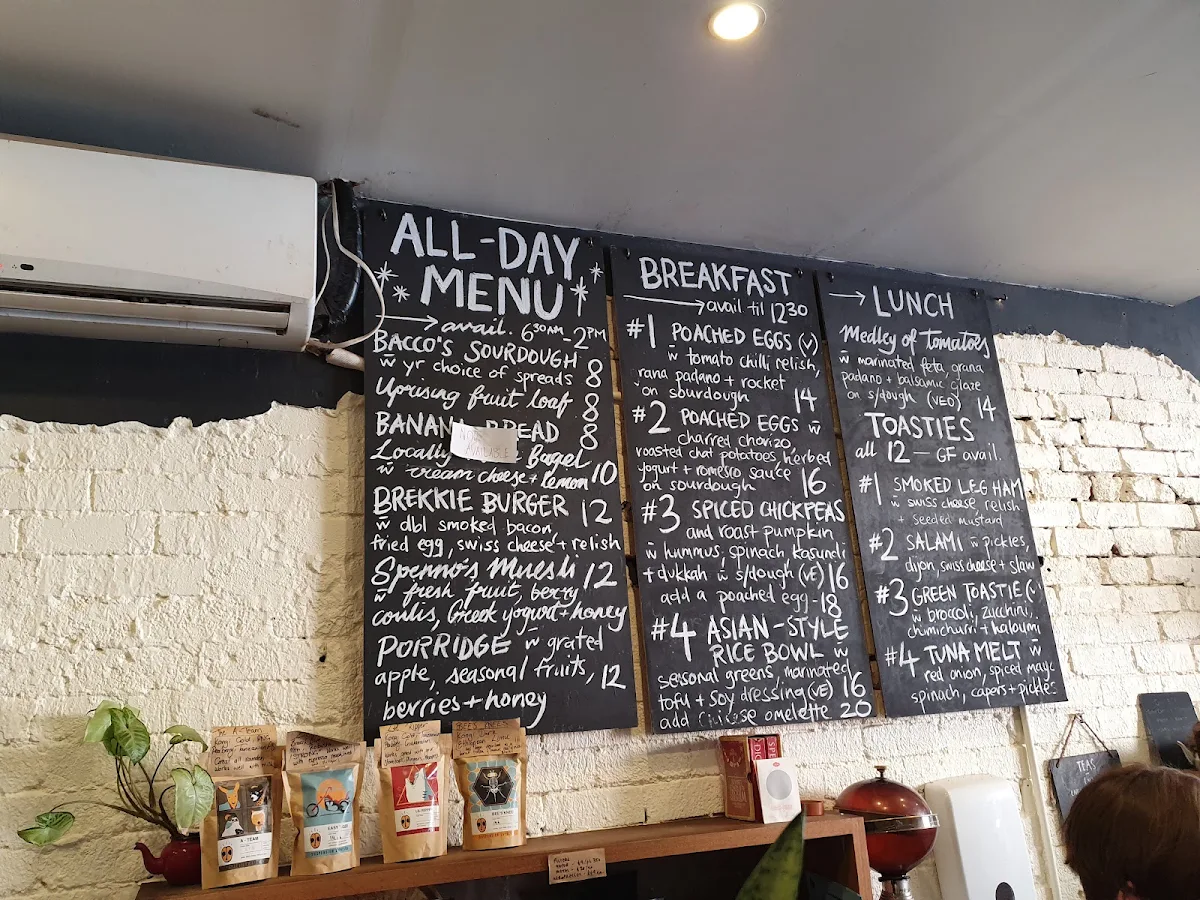 ALL-DAY
MENU
avail. 6³⁰AM-2PM
BACCO'S SOURDOUGH
w̃ yr choice of spreads 8
Uprising fruit loaf 8
BANANA BREAD 8
Locally Bagel
w̃ cream cheese + lemon 10
BREKKIE BURGER 12
w̃ dbl smoked bacon,
fried egg, swiss cheese + relish
Spenno's Muesli 12
w̃ fresh fruit, berry
coulis, Greek yogurt + honey
PORRIDGE w̃ grated
apple, seasonal fruits, 12
berries + honey
BREAKFAST
avail til 1230
#1 POACHED EGGS (V)
w̃ tomato chilli relish,
rana padano + rocket
on sourdough 14
#2 POACHED EGGS w̃
charred chorizo,
roasted chat potatoes, herbed
yogurt + romesco sauce
on sourdough 16
#3 SPICED CHICKPEAS
and roast pumpkin
w̃ hummus, spinach, kasundi
+ dukkah w̃ s/dough (VE) 16
add a poached egg - 18
#4 ASIAN-STYLE
RICE BOWL w̃
seasonal greens, marinated
tofu + soy dressing (VE) 16
add omelette 20
LUNCH
Medley of Tomatoes
w̃ marinated feta, grana
padano + balsamic glaze
on s/dough (VEO) 14
TOASTIES
all 12 - GF avail.
#1 SMOKED LEG HAM
w̃ swiss cheese relish
+ seeded mustard
#2 SALAMI w̃ pickles,
dijon, swiss cheese + slaw
#3 GREEN TOASTIE (V
w̃ broccoli, zucchini,
chimichurri + haloumi
#4 TUNA MELT w̃
red onion, spiced mayo
spinach, capers + pickles
A-TEAM
TEAS